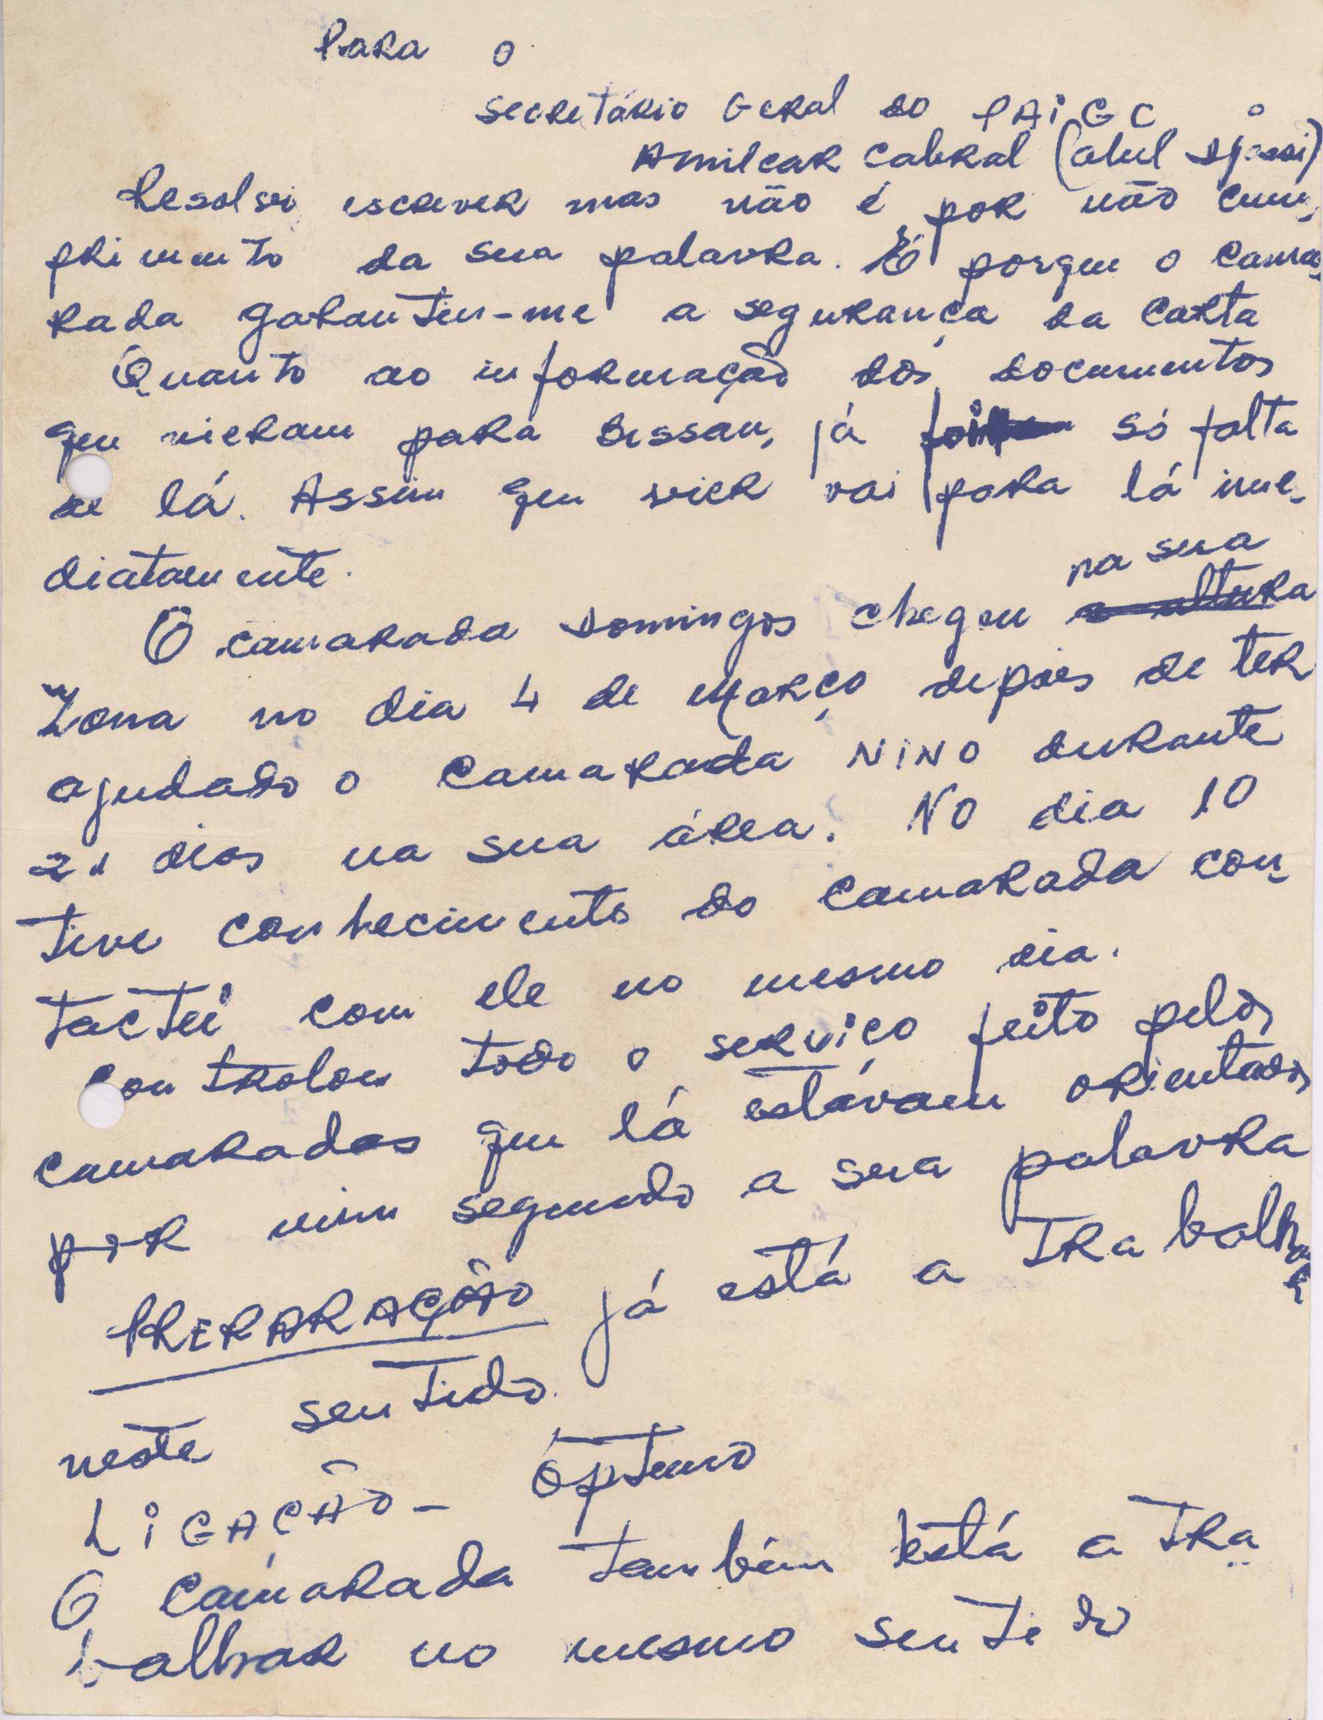 Para o
Secretário Geral do PAIGC
Amilcar Cabral (Abel Djassi)
Resolvi escrever mas não é por não cum-
primento da sua palavra. É porque o cama-
rada garantiu-me a segurança da carta
Quanto ao informação dos documentos
que vieram para Bissau, já só falta
de lá. Assim que vier vai para lá ime-
diatamente.
O camarada Domingos chegou na sua
Zona no dia 4 de Março depois de ter
ajudado o camarada NINO durante
21 dias na sua área. No dia 10
tive conhecimento do camarada con-
tactei com ele no mesmo dia.
Controlou todo o serviço feito pelos
camaradas que lá estávam orientados
por mim segundo a sua palavra
PREPARAÇÃO já está a trabalhar
neste sentido.
LIGAÇÃO - óptimo
O camarada também está a tra
balhar no mesmo sentido